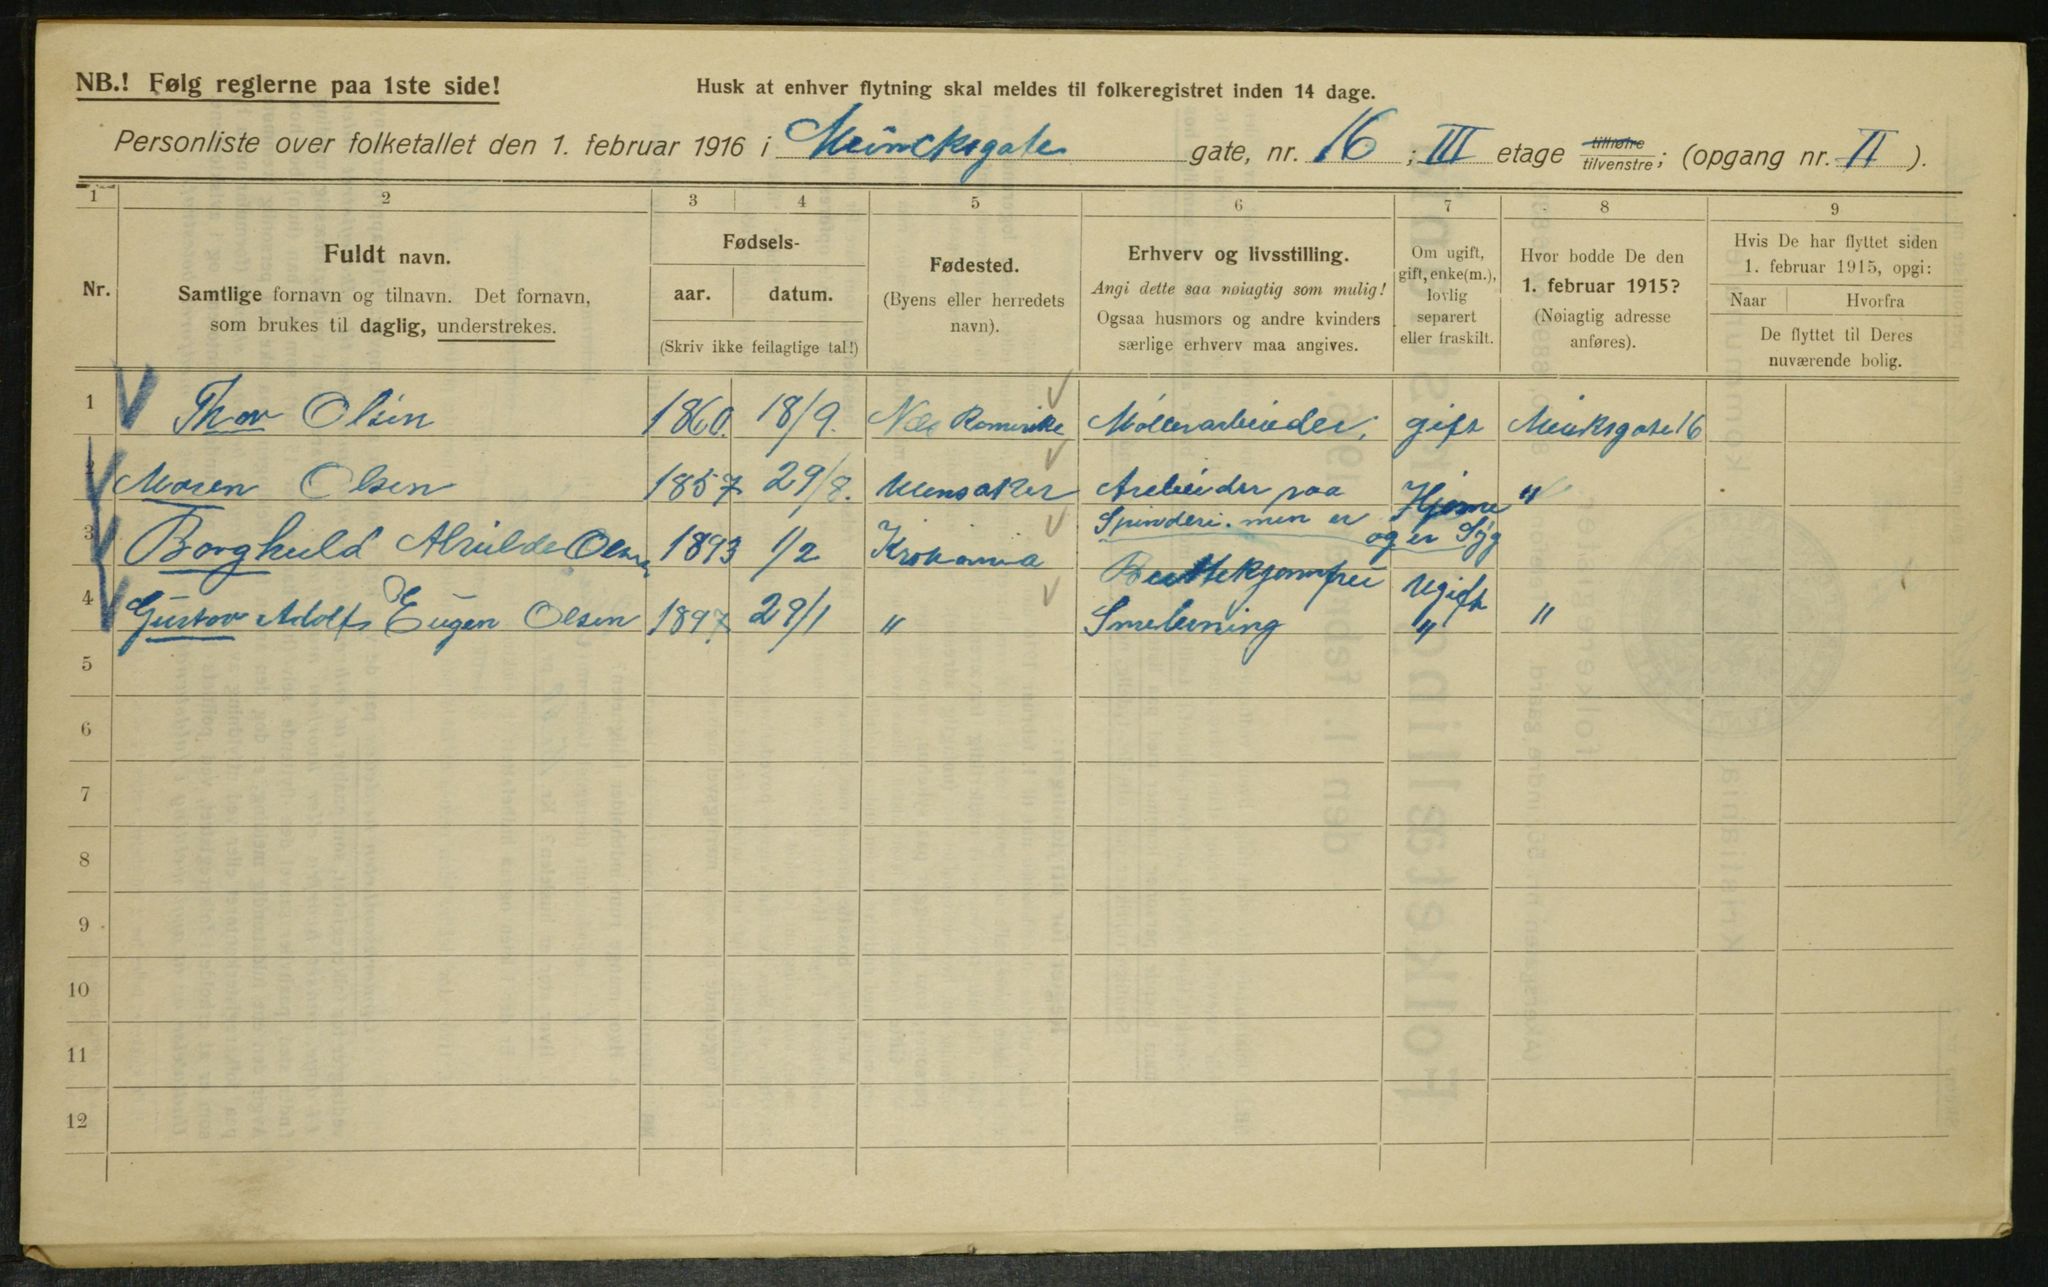 NB.! Følg reglerne paa 1ste side!
Husk at enhver flytning skal meldes til folkeregistret inden 14 dage.
Personliste over folketallet den 1. februar 1916 i Meincksgate gate, nr. 16 ; III etage tilhøire tilvenstre; (opgang nr. II ).
1 2 3 4 5 6 7 8 9
Nr.
Fuldt navn.
Samtlige fornavn og tilnavn. Det fornavn,
som brukes til daglig, understrekes.
Fødsels-
aar. datum.
(Skriv ikke feilagtige tal!)
Fødested.
(Byens eller herredets
navn).
Erhverv og livsstilling.
Angi dette saa nøiagtig som mulig!
Ogsaa husmors og andre kvinders
særlige erhverv maa angives.
Om ugift,
gift, enke(m.),
lovlig
separert
eller fraskilt.
Hvor bodde De den
1. februar 1915?
(Nøiagtig adresse
anføres).
Hvis De har flyttet siden
1. februar 1915, opgi:
Naar Hvorfra
De flyttet til Deres
nuværende bolig.
1 Thor Olsen 1860. 18/9. Næs Romerike Møllerarbeider. gift Meinksgate 16
2 Maren Olsen 1857 29/8. Arbeider paa Hjeme "
Spinderi. men er og er Syg
3 Borghild Olsen 1893 1/2 Kristiania Ugift
4 Gustav Adolf Eugen Olsen 1897 29/1 " " "
5
6
7
8
9
10
11
12